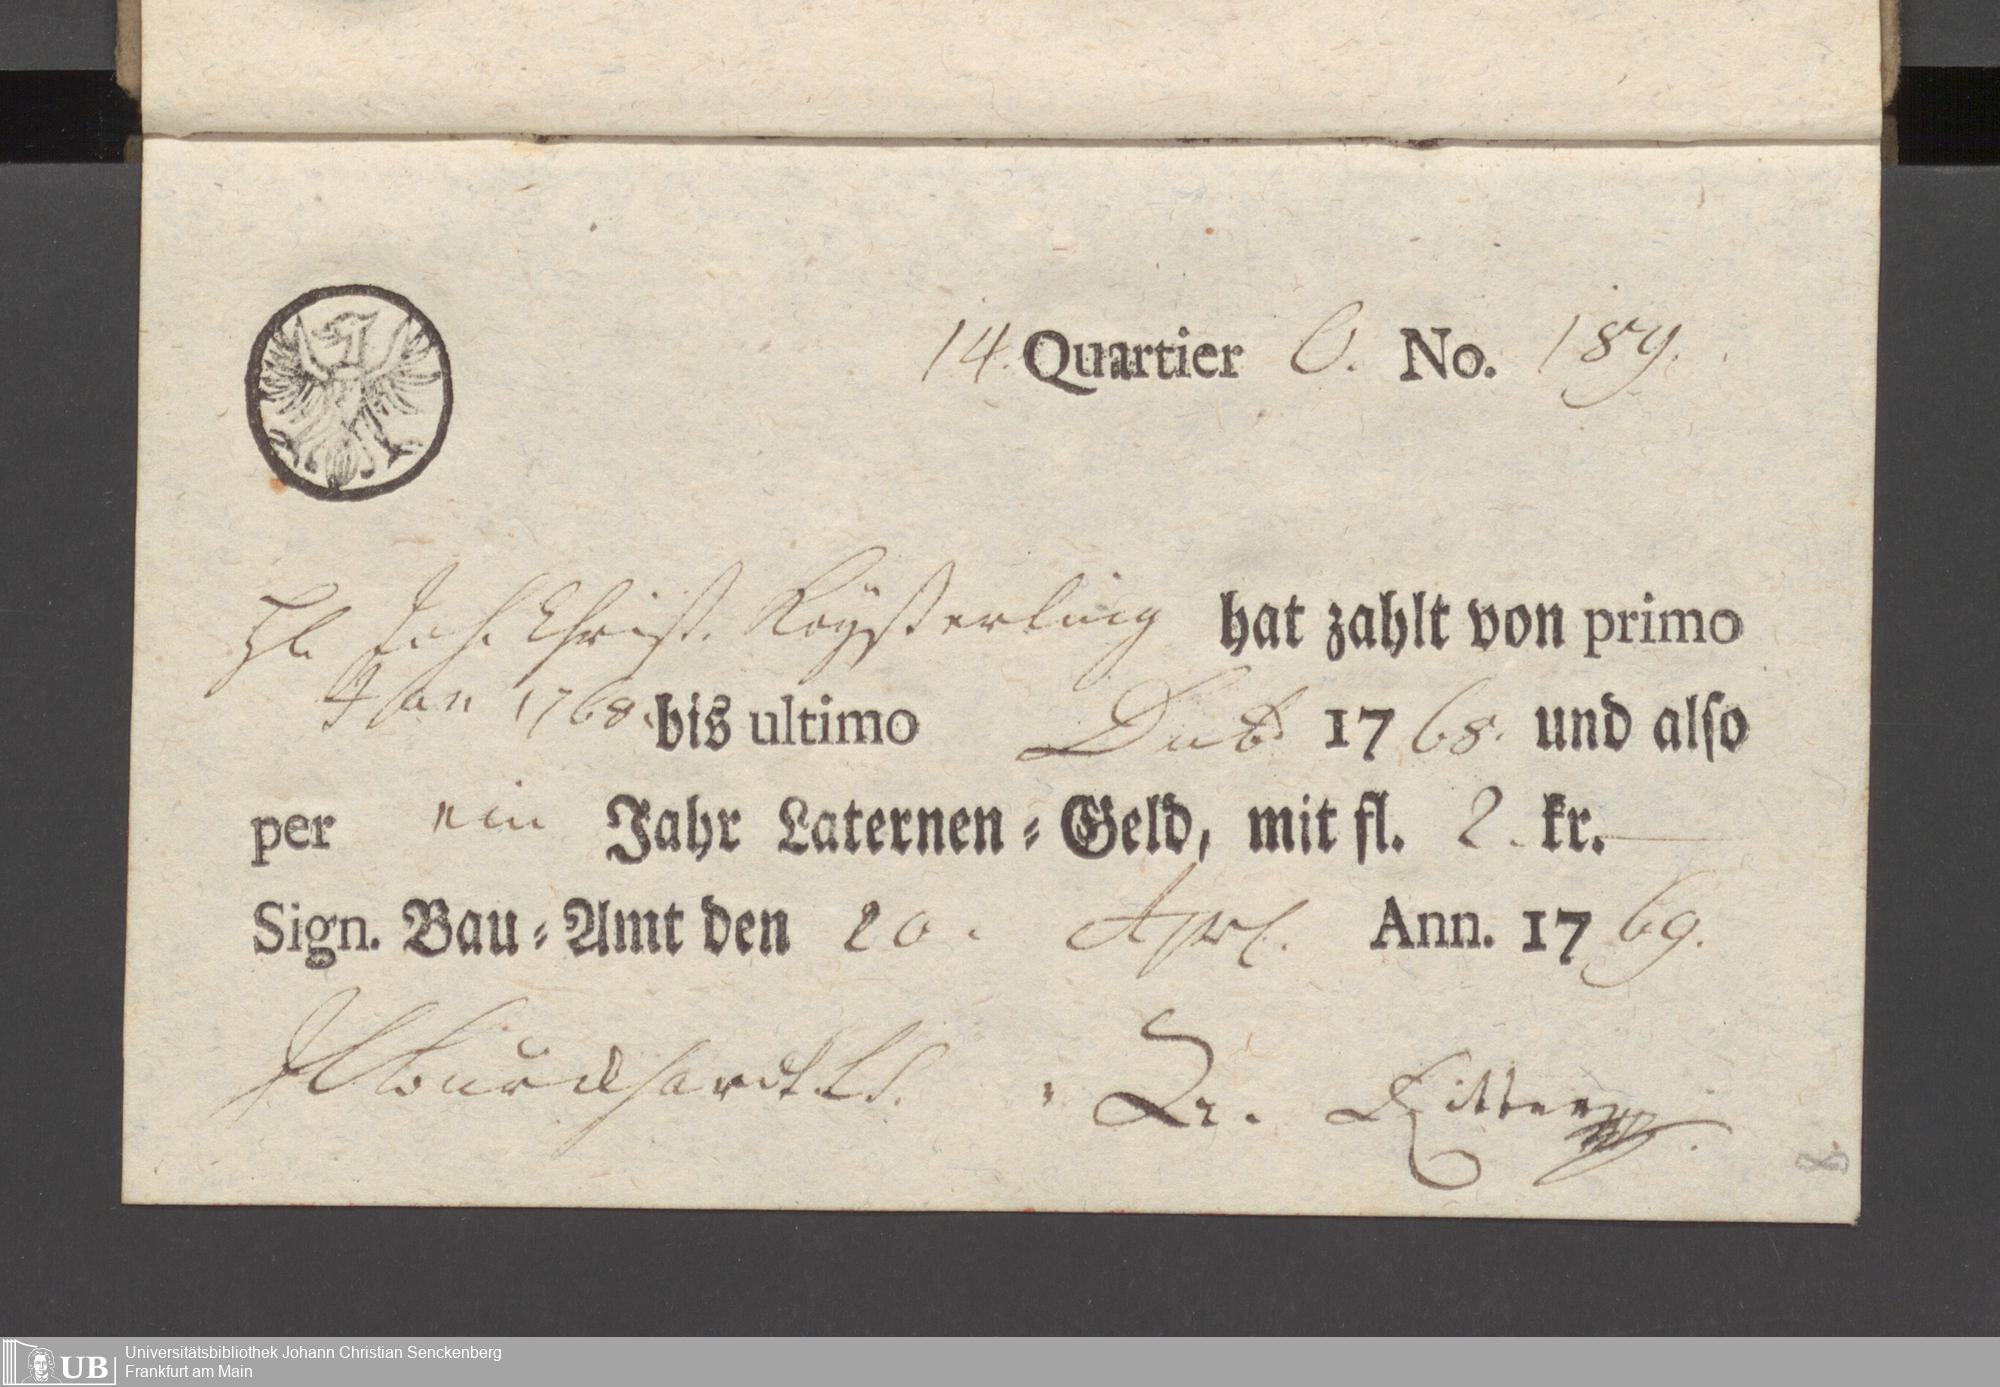 14. Quartier O. No. 189.
Hl. Joh. Christ. Koÿßerling hat zahlt von primo
Jan 1768. bis ultimo Dec 1768. und also
per ein Jahr Laternen-Geld, mit fl. 2. kr.
Sign. Bau-Amt den 20. Apr. Ann. 1769.
Burckhardt
Ritter
8
UB
Universitätsbibliothek Johann Christian Senckenberg
Frankfurt am Main